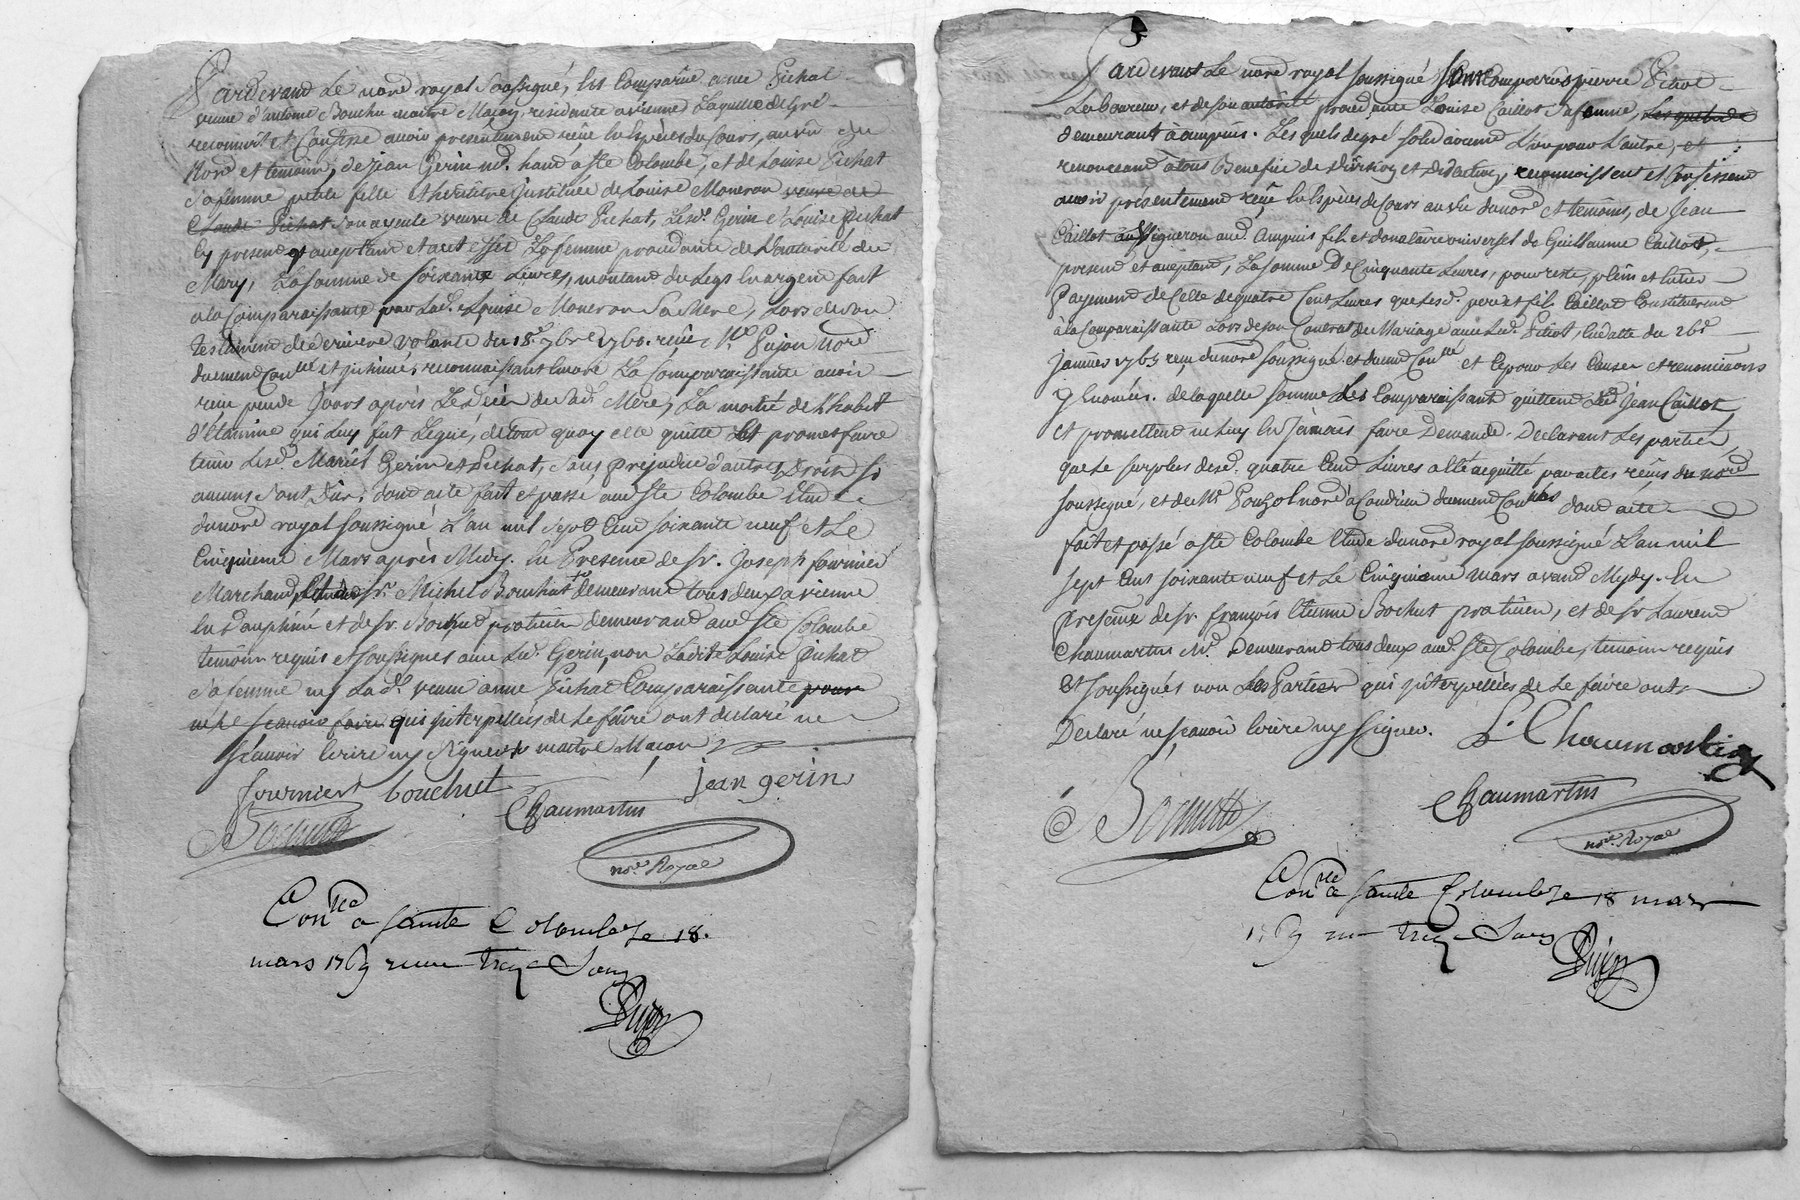 Pardevand Le nore royal soussigné, est Comparüe anne Pichat
veuve d'antoine Bouchu maitre Maçon residante a vienne Laquelle de gré
reconnoit et Confesse avoir presentement reçue en Espèces du Cours, au vû du
Nore et temoins, de jean Gerin md. hand à Ste Colombe, et de Louise Pichat
sa femme petite fille et heritière instituée de Louise Moneron veuve de
Claude Pichat son ayeule veuve de Claude Pichat, Lesd. Gerin et Louise Pichat
Cy presend et aceptant et a cet effet La femme procedante de L'autorité du
Mary, La somme de soixante Livres, montand du Legs en argend fait
a la Comparaissante par Lad. Louise Moneron sa Mere, Lors de son
testament de derniere volonté du 18e. 7bre 1760. reçu Me. Pujon Nore
duement Conlé et insinué, reconnoissant encore La Comparaissante avoir
reçu peu de jours après Le decès de sad. Mere, La moitié de L'habit
d'Etamine qui Luy fut Legué, de tout quoy elle quitte et promet faire
tenir Lesd. Mariés Gerin et Pichat, sans prejudice d'autres Droits si
aucuns sont Dus, dond acte fait et passé aud Ste Colombe Etude
du nore royal soussigné L'an mil Sept Cend soixante neuf et Le
Cinquieme Mars après Midy. en Presence de Sr. Joseph fournier
Marchand, Sr. Michel Bouchut demeurand tous deux a vienne
en Dauphiné et de Sr. Bochud praticien demeurand aud Ste Colombe
temoins requis et soussignés avec Led. Gerin, non Ladite Louise Pichat
sa femme ny Lad. veuve anne Pichat Comparaissante pour
ne le scavoir faire qui sur interpellées de Le faire ont declaré ne
scavoir Ecrire ny Signer maitre Macon
fournier bouchut jean gerin
Bochut Chaumartin
nore. Royal
Conlé a sainte Colombe Le 18.
mars 1769 reçu treize Sous
Pujon
Pardevant Le nore royal soussigné sont Comparus pierre Pitiot
Laboureur, et de son autorité procedante Louise Caillot sa femme,
demeurants à ampuis. Lesquels de gré solidairement L'un pour L'autre, et
renonceand à tous Benefice de Division et Discution, reconnoissent et Confessend
avoir presentement reçu en Espèces de Cours au vû du nore et temoins, de Jean
Caillot Vigneron aud. Ampuis fils et donataire universel de Guillaume Caillot,
presend et aceptand, La somme De Cinquante Livres, pour reste, plein et entier
Payement de Celle de quatre Cent Livres que Lesd. pere et fils Caillot Constituerend
à la Comparaissante Lors de son Contrat de Mariage avec Led. Pitiot, en datte du 26e.
Janvier 1763 reçu du nore soussigné et duemt Conlé et Ce pour Les Causes et renonciations
y Enoncés. de laquelle somme Les Comparaissant quittend Led. Jean Caillot
et promettend ne Luy en Jamais faire Demande. Declarant Les parties
que Le surplus desd. quatre Cend Livres a Eté acquitté par actes reçus du nore
soussigné, et de Me Pouzol nore à Condrieu duement Conlés dond acte
fait et passé a Ste Colombe Etude du nore royal soussigné L'an mil
sept Cent soixante neuf et Le Cinquieme mars avand Mydy. En
presence de Sr. françois Etienne Bochut praticien, et de Sr Laurend
Chaumartin Md. Demeurand tous deux aud. Ste Colombe, temoins requis
et soussignés non Les Parties qui sur interpellées de Le faire ont
Declaré ne scavoir Ecrire ny signer. L. Chaumartin
Bochutt Chaumartin
nore. Royal
Conlé a sainte Colombe Le 18 mars
1769 reçu treize Sous
Pujon